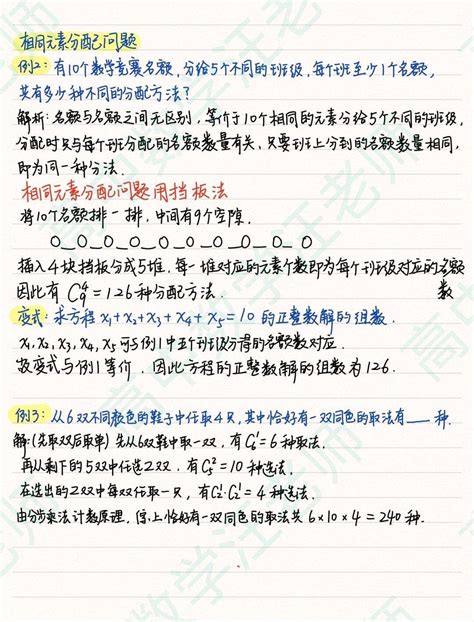 相同元素分配问题
例2：有10个数学竞赛名额，分给5个不同的班级，每个班至少1个名额，
共有多少种不同的分配方法？
解析：名额与名额之间无区别，等价于10个相同的元素分给5个不同的班级，
分配时只与每个班分配的名额数量有关，只要班上分到的名额数量相同，
即为同一种分法．
相同元素分配问题用挡板法
将10个名额排一排，中间有9个空隙．
O_O_O_O_O_O_O_O_O_O
插入4块挡板分成5堆，每一堆对应的元素个数即为每个班级对应的名额
数
因此有 C₉⁴=126种分配方法．
变式：求方程 x₁+x₂+x₃+x₄+x₅=10 的正整数解的组数．
x₁, x₂, x₃, x₄, x₅ 可与例1中五个班级分得的名额数对应．
故变式与例1等价．因此方程的正整数解的组数为126．
例3：从6双不同颜色的鞋子中任取4只，其中恰好有一双同色的取法有___种．
解：(先取双后取单) 先从6双鞋中取一双，有C₆¹=6种取法．
再从剩下的5双中任选2双．有C₅²=10种选法．
在选出的2双中每双任取一只，有C₂¹·C₂¹=4种选法．
由分步乘法计数原理，得上恰好有一双同色的取法共 6×10×4=240种．
高中数学汪老师